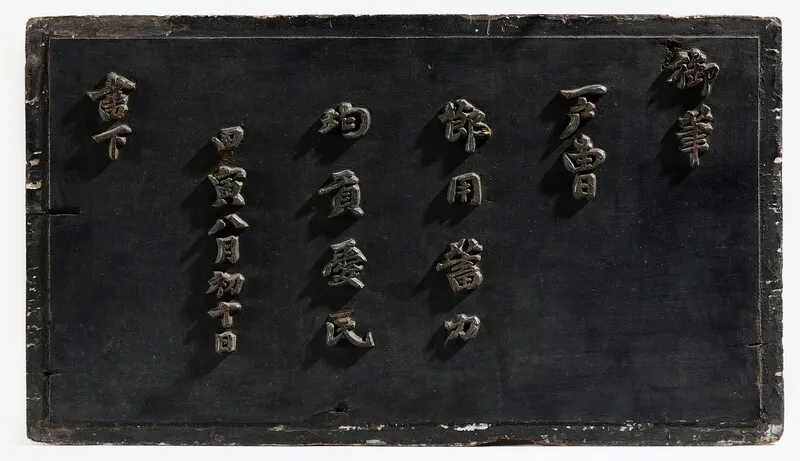 御筆
戶曹
節用蓄力
均貢愛民
甲寅八月初十日
書下